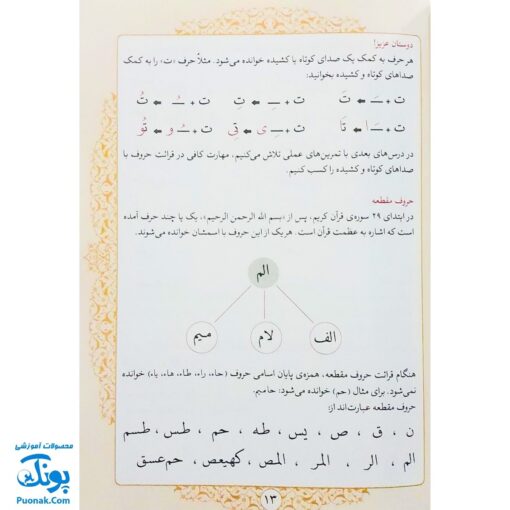 دوستان عزیز!
هر حرف به کمک یک صدای کوتاه یا کشیده خوانده می‌شود. مثلاً حرف «ت» را به کمک
صداهای کوتاه و کشیده بخوانید:
ت + ـَ ⬅ تَ ت + ـِ ⬅ تِ ت + ـُ ⬅ تُ
ت + ـَ ا ⬅ تَا ت + ـِ ی ⬅ تِی ت + ـُ و ⬅ تُو
در درس‌های بعدی با تمرین‌های عملی تلاش می‌کنیم، مهارت کافی در قرائت حروف با
صداهای کوتاه و کشیده را کسب کنیم.
حروف مقطعه
در ابتدای ۲۹ سوره‌ی قرآن کریم، پس از «بسم الله الرحمن الرحیم»، یک یا چند حرف آمده
است که اشاره به عظمت قرآن است. هر یک از این حروف با اسمشان خوانده می‌شوند.
الم
الف لام میم
هنگام قرائت حروف مقطعه، همزه‌ی پایان اسامی حروف (حاء، راء، طاء، هاء، یاء) خوانده
نمی‌شود. برای مثال (حم) خوانده می‌شود: حامیم.
حروف مقطعه عبارت‌اند از:
ن ، ق ، ص ، یس ، طه ، حم ، طس ، طسم
الم ، الر ، المر ، المص ، کهیعص ، حم عسق
۱۳
محصولات آموزشی
پونک
Puonak.Com